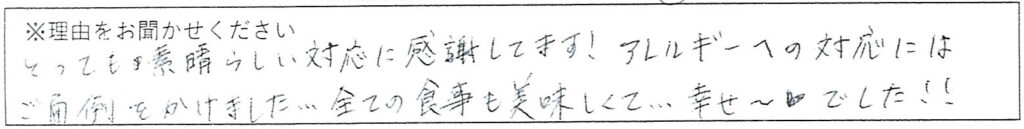 ※理由をお聞かせください
とっても素晴らしい対応に感謝してます！アレルギーへの対応には
ご面倒をかけました…全ての食事も美味しくて…幸せ〜でした！！